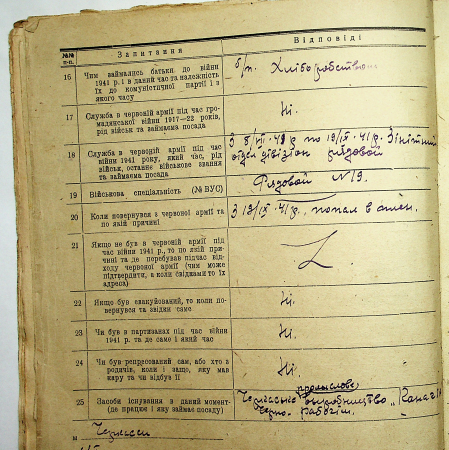 №№ п.п.
Запитання
Відповіді
16
Чим займались батьки до війни
1941 р. і в даний час та належність
їх до комуністичної партії і з
якого часу
б/п. Хліборобством
17
Служба в червоній армії під час гро-
мадянської війни 1917—22 років,
рід військ та займаєма посада
Ні.
18
Служба в червоній армії під час
війни 1941 року, який час, рід
військ, останнє військове звання
та займаєма посада
З 8/VII-41р по 19/IX-41р. Зенітний
дівізіон рядовой
19
Військова спеціальність (№ ВУС)
Рядовой №19.
20
Коли повернувся з червоної армії та
по якій причині
З 19/IX-41р., попал в плен.
21
Якщо не був в червоній армії під
час війни 1941 р., то по якій при-
чині та де перебував підчас від-
ходу червоної армії (чим може
підтвердити, а коли свідками то їх
адреса)
22
Якщо був евакуйований, то коли по-
вернувся та звідки саме
Ні.
23
Чи був в партизанах під час війни
1941 р. та де саме і який час
Ні.
24
Чи був репресований сам, або хто з
родичів, коли і защо, яку мав
миру та чи відбув її
Ні.
25
Засоби існування в даний момент-
(де працює і яку займає посаду)
промыслове
Черкаське виробництво „Канат"
Рабочий.
м Черкассы